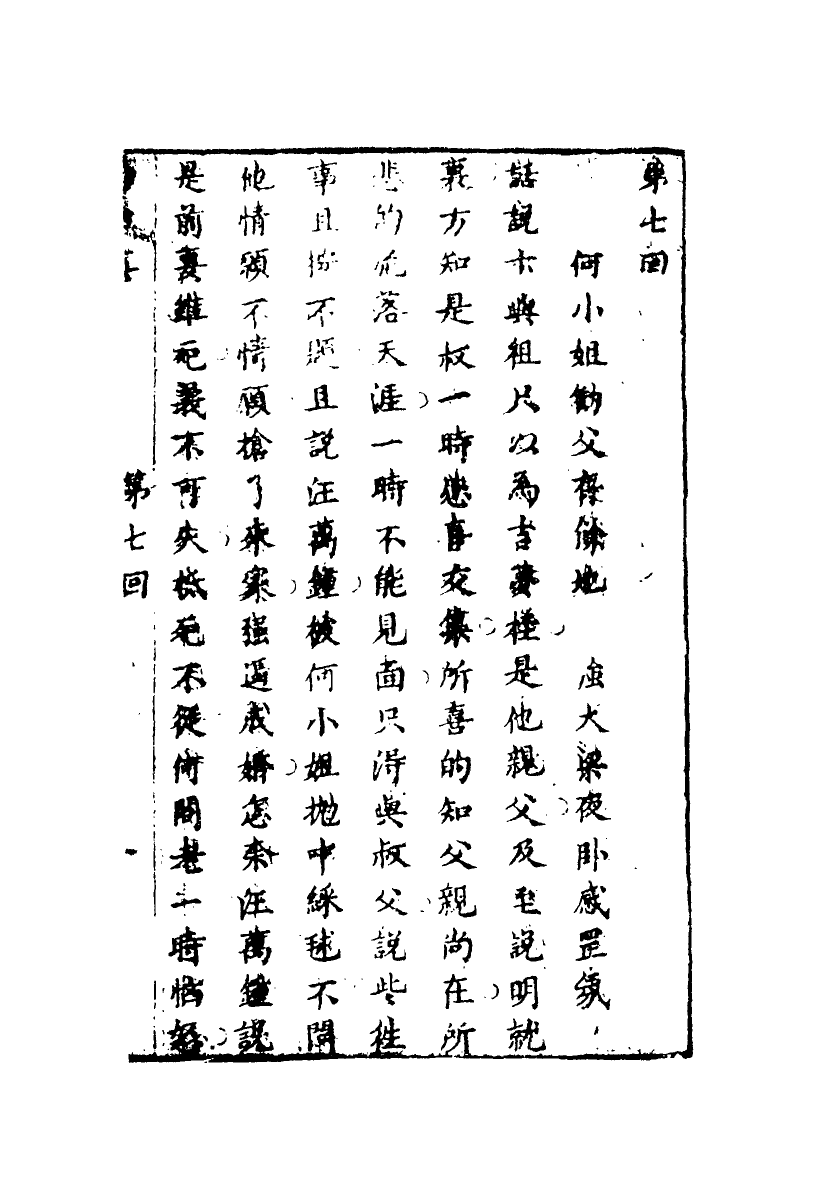 第七回
何小姐勸父 餘地 大梁夜卧感罡氛
話說卞興祖只以為吉夢 是他親父及至說明就
裏方知是叔一時悲喜交集所喜的知父親尚在所
悲的流落天涯一時不能見面只得與叔父說些往
事且按不題且說汪萬鐘被何小姐拋中綵毬不問
他情願不情願搶了來家强逼成婚怎奈汪萬鐘說
是前妻雖死義不可失抵死不從術開老一時惱
第七回
一